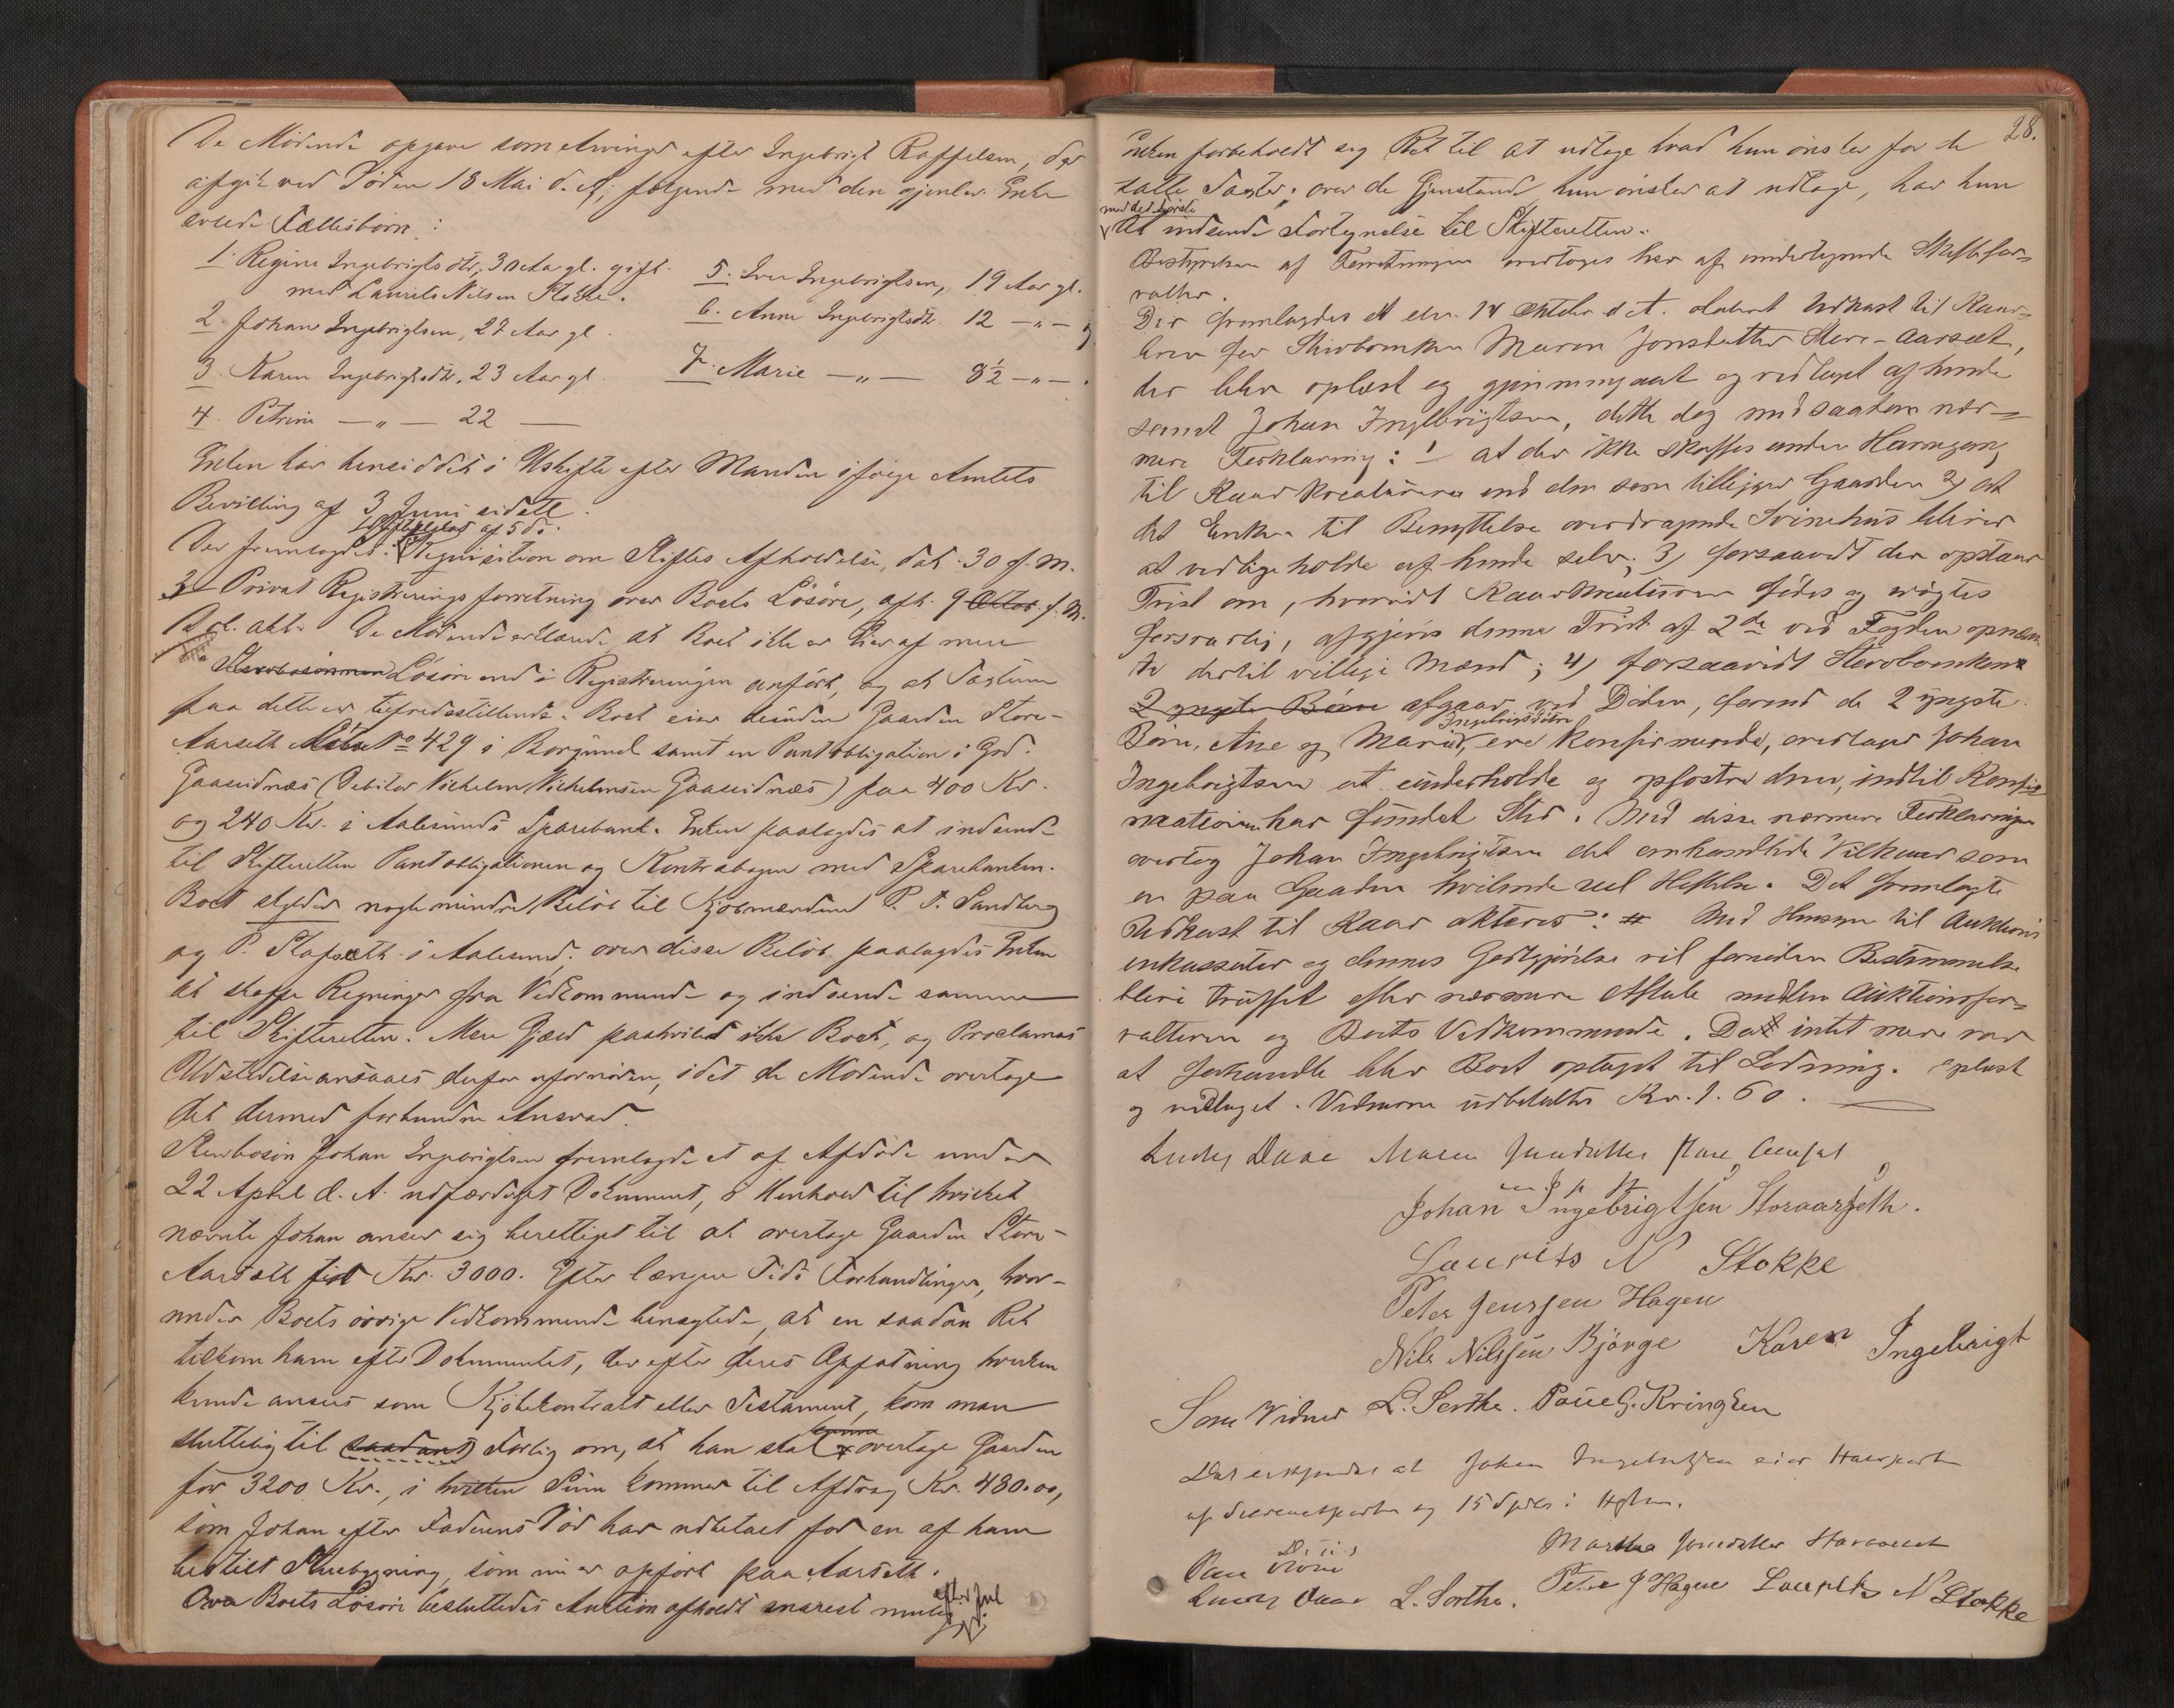 De Mødende opgave som Arvinger efter Ingebrigt Raffelsen, der
afgik ved Døden 18 Mai d. A., følgende med den gjenlev. Enke
avlede Fællesbørn:
1. Regine Ingebrigtsdtr, 30 Aar gl. gift
med Laurits Nilsen Stokke.
2. Johan Ingebrigtsen, 27 Aar gl.
3. Karen Ingebrigtsdtr. 23 Aar gl.
4. Petrine — „ — 22 —
5. Iver Ingebrigtsen, 19 Aar gl.
6. Anne Ingebrigtsdtr. 12 — „ — og
7. Marie — „ — 8½ — „ — .
Enken har hensiddet i Uskifte efter Manden ifølge Amtets
Bevilling af 3 Juni sidstl.
af 5 ds.
Der fremlagdes: Requisition om Skiftes Afholdelse, dat. 30 f. M.
3 Privat Registreringsforretning over Boets Løsøre, afh. 9 Oktob. f. M.
akt. De Mødende erklærede, at Boet ikke er Eier af mere
Løsøre end i Registreringen anført, og at Taxterne
paa dette er tilfredsstillende. Boet eier desuden Gaarden Store-
Aarseth No 429 i Borgund samt en Pantobligation i Grd.
Gaaseidnæs (Debitor Vilhelm Vilhelmsen Gaaseidnæs) paa 400 Kr.
og 240 Kr. i Aalesunds Sparebank. Enken paalagdes at indsende
til Skifteretten Pantobligationen og Kontrabogen med Sparebanken.
Boet skylder nogle mindre Beløb til Kjøbmændene P. F. Sandberg
og P. Slapseth i Aalesund; over disse Beløb paalagdes Enken
at skaffe Regninger fra Vedkommende og indsende samme
til Skifteretten. Mere Gjæld paahviler ikke Boet, og Proclamas
Udstedelse ansaaes derfor ufornøden, idet de Mødende overtage
det dermed forbundne Ansvar.
Stervbosøn Johan Ingebrigtsen fremlagde et af Afdøde under
22 April d. A. udfærdiget Dokument, i Henhold til hvilket
nævnte Johan anser sig berettiget til at overtage Gaarden Store-
Aarseth for Kr. 3000. Efter længere Tids Forhandlinger, hvor-
under Boets øvrige Vedkommende benegtede, at en saadan Ret
tilkom ham efter Dokumentet, der efter deres Opfatning hverken
kunde ansees som Kjøbekontrakt eller Testament, kom man
kunne
sluttelig til saadant Forlig om, at han skal overtage Gaarden
for 3200 Kr., i hvilken Sum kommer til Afdrag Kr. 480.00,
som Johan efter Faderens Død har udbetalt for en af ham
bestilt Stuebygning, som nu er opført paa Aarseth.
Over Boets Løsøre besluttedes Auktion afholdt snarest mulig
efter Jul
28.
Enken forbeholdt sig Ret til at udtage hvad hun ønsker for de
satte Taxter; over de Gjenstande hun ønsker at udtage, har hun
med det første
at indsende Fortegnelse til Skifteretten.
Bestyrelsen af Forretningen overtoges her af undertegnede Skiftefor-
valter.
Der fremlagdes et den 14 Oktober d. A. dateret Udkast til Kaar-
brev for Stervboenken Maren Jonsdatter Store-Aarsæt,
der blev oplæst og gjennemgaaet og vedtaget af hende
samt Johan Ingebrigtsen, dette dog med saadan nær-
mere Forklaring: 1 at der ikke skaffes anden Havnegang
til Kaarkreaturene end den som tilligger Gaarden 2) at
det Enken til Benyttelse overdragende Svinehus bliver
at vedligeholde af hende selv; 3) forsaavidt der opstaar
Tvist om, hvorvidt Kaarkreaturene fødes og røgtes
forsvarlig, afgjøres denne Tvist af 2de ved Fogden opnævn
te dertil villige Mænd; 4) forsaavidt Stervboenken
2 yngste Børn afgaar ved Døden, førend de 2 yngste
Ingebrigtsdøtre
Børn, Ane og Marie, ere konfirmerede, overtager Johan
Ingebrigtsen at underholde og opfostre dem, indtil Konfir
mationen har fundet Sted. Med disse nærmere Forklaringer
overtog Johan Ingebrigtsen det omhandlede Vilkaar som
en paa Gaarden hvilende reel Heftelse. Det fremlagte
Udkast til Kaar akteres: # Med Hensyn til Auktions
inkassator og dennes Godtgjørelse vil fornøden Bestemmelse
blive truffet efter nærmere Aftale mellem Auktionsfor-
valteren og Boets Vedkommende. Da intet mere var
at forhandle blev Boet optaget til Lodning. Oplæst
og vedtaget. Vidnerne udbetaltes Kr. 1.60.
Ludv Daae Maren Jonsdatter Store Aarset
m. f. p. P.
Johan Ingebrigtsen Storaarseth.
Laurits N Stokke
Peter Jenssen Hagen
Nils Nilssen Bjørge Karen Ingebrigt
Som Vidner L. Sorthe. Poul G. Kringsen
Det erkjendes at Johan Ingebrigtsen eier Halvparten
af og 15
Martha Jonsdatter Storaarset
Peter J Hagen Laurits N Stokke
Ludv Daae L. Sorthe.